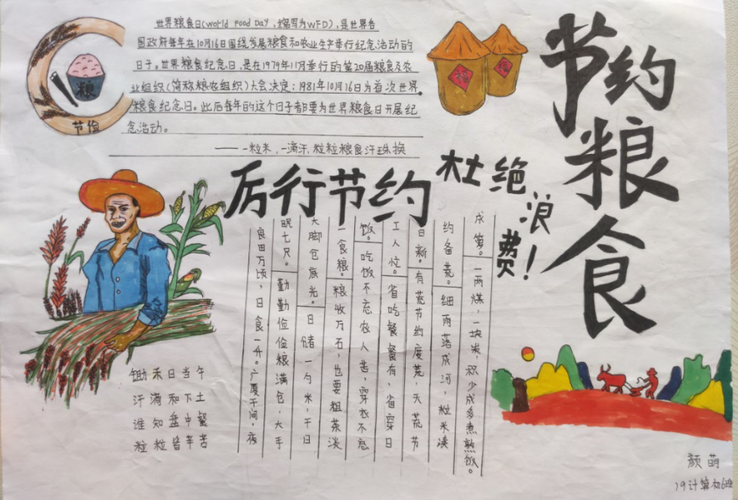 节约粮食
世界粮食日(World Food Day，缩写为WFD)，是世界各
国政府每年在10月16日围绕发展粮食和农业生产举行纪念活动的
日子。世界粮食纪念日，是在1979年11月举行的第20届粮食及农
业组织(简称粮农组织)大会决定：1981年10月16日为首次世界
粮食纪念日。此后每年的这个日子都要为世界粮食日开展纪
念活动。
——一粒米，一滴汗，粒粒粮食汗珠换
粮
节俭
厉行节约
杜绝浪费！
良田万顷，日食一升。广厦千间，夜
眠七尺。勤勤俭俭粮满仓，大手
大脚仓底光。日储一勺米，千日
一仓粮。粮收万石，也要粗茶淡
饭。吃饭不忘农人苦，穿衣不忘
工人忙。省吃餐餐有，省穿日
日新。有荒节约度荒，无荒节
约备荒。细雨落成河，粒米凑
成箩。一两煤，一块炭，积少成多煮熟饭。
锄禾日当午
汗滴禾下土
谁知盘中餐
粒粒皆辛苦
颜萌